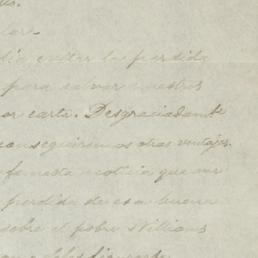 lar.
dia evitar la perdida
para salvar nuestros
or carta. Desgraciadamte
conseguiran os otras ventajas.
funesta noticia que me
perdida de esa buena
sobre el pobre Williams